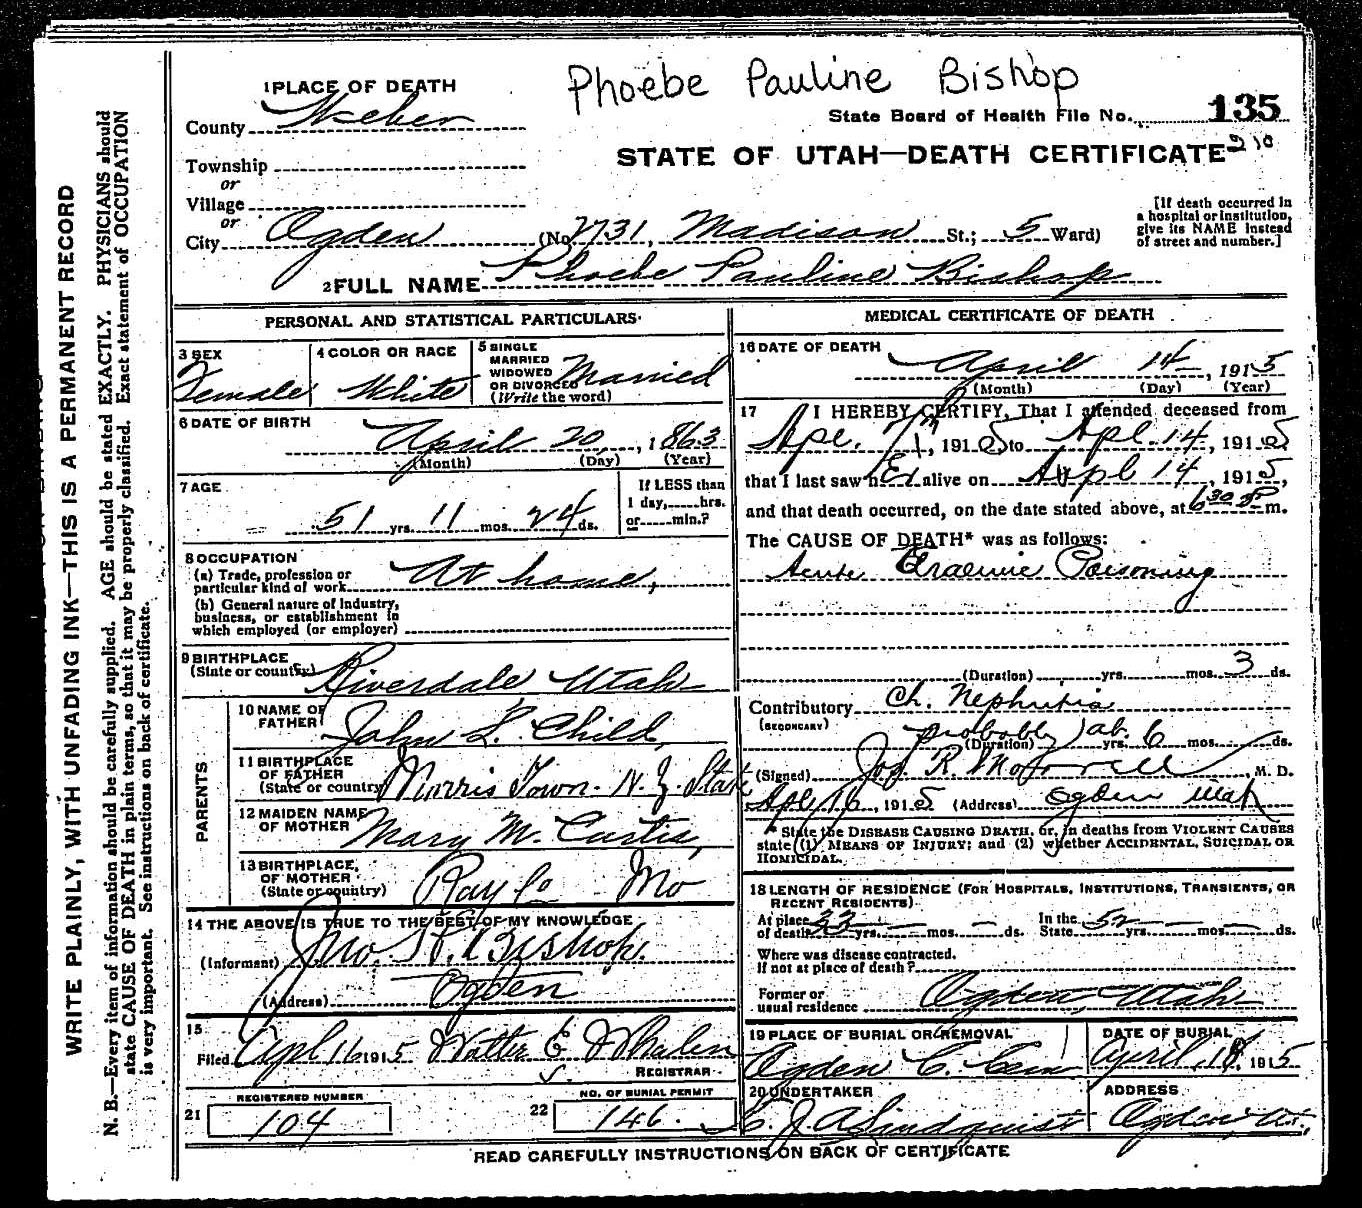 Phoebe Pauline Bishop
1 PLACE OF DEATH
County Weber
State Board of Health File No. 135
210
STATE OF UTAH—DEATH CERTIFICATE
Township
or
Village
or
City Ogden (No 2731, Madison St.; 5 Ward)
[If death occurred in
a hospital or institution,
give its NAME instead
of street and number.]
2 FULL NAME Phoebe Pauline Bishop
PERSONAL AND STATISTICAL PARTICULARS
3 SEX
Female
4 COLOR OR RACE
White
5 SINGLE
MARRIED
WIDOWED
OR DIVORCED
(Write the word)
Married
6 DATE OF BIRTH
April 20, 1863
(Month) (Day) (Year)
7 AGE
51 yrs. 11 mos. 24 ds.
If LESS than
1 day, hrs.
or min.?
8 OCCUPATION
(a) Trade, profession or
particular kind of work At home,
(b) General nature of Industry,
business, or establishment in
which employed (or employer)
9 BIRTHPLACE
(State or country) Riverdale Utah
PARENTS
10 NAME OF
FATHER John L. Child,
11 BIRTHPLACE
OF FATHER
(State or country) Morris Town. N. Y. State
12 MAIDEN NAME
OF MOTHER Mary M. Curtis,
13 BIRTHPLACE,
OF MOTHER
(State or country) Ray Co Mo
14 THE ABOVE IS TRUE TO THE BEST OF MY KNOWLEDGE
(Informant) Jno. H. Bishop.
(Address) Ogden
15
Filed Apl 16 1915 Walter E Whalen
REGISTRAR
REGISTERED NUMBER
21 104
NO. OF BURIAL PERMIT
22 146.
MEDICAL CERTIFICATE OF DEATH
16 DATE OF DEATH
April 14, 1915
(Month) (Day) (Year)
17 I HEREBY CERTIFY, That I attended deceased from
Apl. , 1915 to Apl. 14, 1915
that I last saw hEr alive on Apl 14, 1915,
and that death occurred, on the date stated above, at 6 30 P m.
The CAUSE OF DEATH* was as follows:
Acute Uraemic Poisoning
(Duration) yrs. mos. 3 ds.
Contributory Ch. Nephritis
(SECONDARY)
probably ab. 6
(Duration) yrs. mos. ds.
(Signed) Jos. R. Morrell, M. D.
Apl 16, 1915 (Address) Ogden Utah
* State the DISEASE CAUSING DEATH, or, in deaths from VIOLENT CAUSES
state (1) MEANS OF INJURY; and (2) whether ACCIDENTAL, SUICIDAL OR
HOMICIDAL.
18 LENGTH OF RESIDENCE (FOR HOSPITALS, INSTITUTIONS, TRANSIENTS, OR
RECENT RESIDENTS)
At place
of death 33 yrs. — mos. — ds.
In the
State 52 yrs. — mos. — ds.
Where was disease contracted.
If not at place of death?
Former or
usual residence Ogden, Utah
19 PLACE OF BURIAL OR REMOVAL
Ogden C. Cem
DATE OF BURIAL
April, 18, 1915
20 UNDERTAKER
Lindquist
ADDRESS
Ogden, Ut.,
READ CAREFULLY INSTRUCTIONS ON BACK OF CERTIFICATE
WRITE PLAINLY, WITH UNFADING INK—THIS IS A PERMANENT RECORD
N. B.—Every item of information should be carefully supplied. AGE should be stated EXACTLY. PHYSICIANS should
state CAUSE OF DEATH in plain terms, so that it may be properly classified. Exact statement of OCCUPATION
is very important. See instructions on back of certificate.